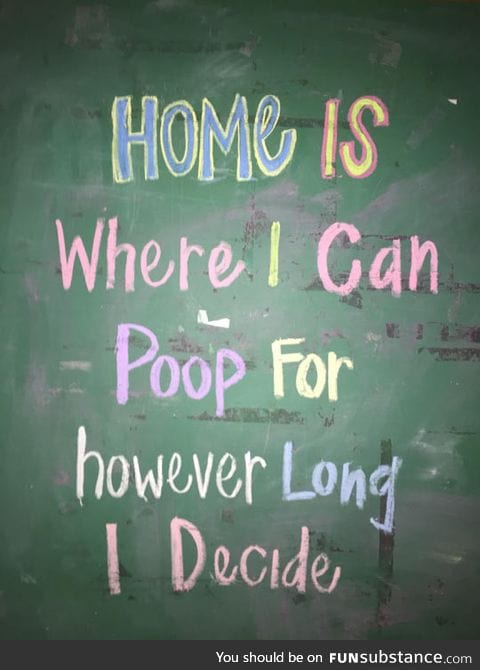 HOME IS
Where I Can
Poop For
however Long
I Decide
You should be on FUNsubstance.com